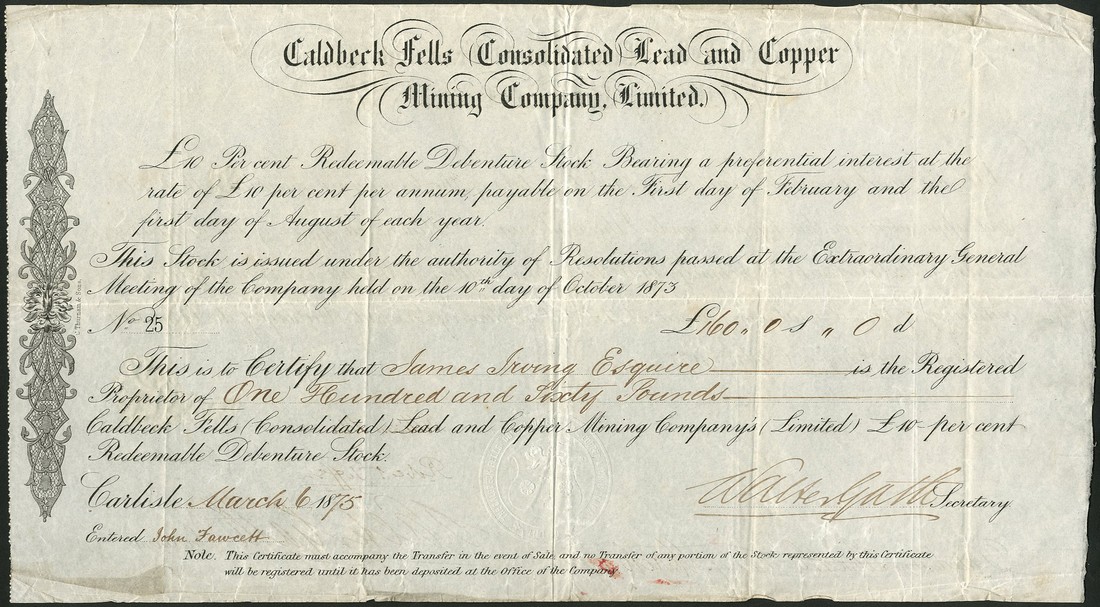 Caldbeck Fells (Consolidated) Lead and Copper
Mining Company, Limited.
£10 Per cent Redeemable Debenture Stock Bearing a preferential interest at the
rate of £10 per cent per annum, payable on the First day of February and the
first day of August of each year.
This Stock is issued under the authority of Resolutions passed at the Extraordinary General
Meeting of the Company held on the 10th day of October 1873
No 25 £160 „ 0 s „ 0 d
This is to Certify that James Irving Esquire is the Registered
Proprietor of One Hundred and Sixty Pounds
Caldbeck Fells (Consolidated) Lead and Copper Mining Company's (Limited) £10 per cent
Redeemable Debenture Stock.
Carlisle March 6 1875
Walter Secretary
Entered John Fawcett
Note. This Certificate must accompany the Transfer in the event of Sale, and no Transfer of any portion of the Stock represented by this Certificate
will be registered until it has been deposited at the Office of the Company
C. Thurnam & Sons.